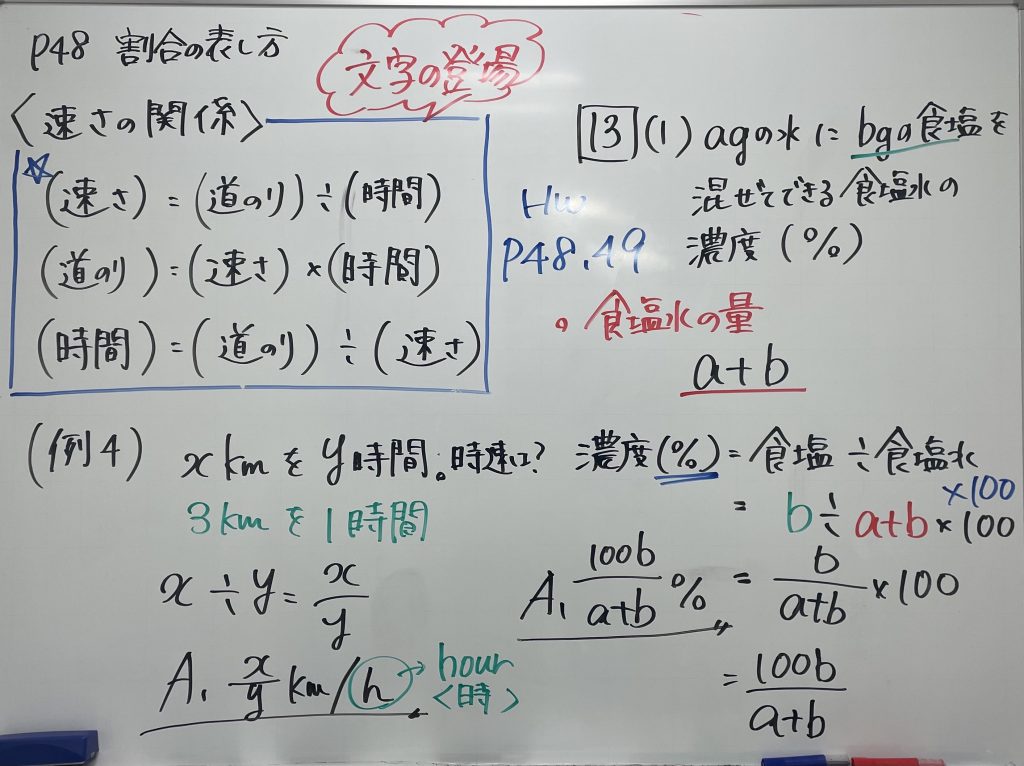 P48 割合の表し方
文字の登場
〈速さの関係〉
☆(速さ) = (道のり) ÷ (時間)
(道のり) = (速さ) × (時間)
(時間) = (道のり) ÷ (速さ)
(例4) x km を y 時間。時速は?
3 km を 1 時間
x ÷ y = x/y
A. x/y km/h → hour
〈時〉
13 (1) agの水に bgの食塩を
混ぜてできる食塩水の
濃度 (%)
HW
P48.49
。食塩水の量
a+b
濃度(%) = 食塩 ÷ 食塩水
×100
= b ÷ a+b × 100
= b/a+b × 100
= 100b/a+b
A. 100b/a+b %